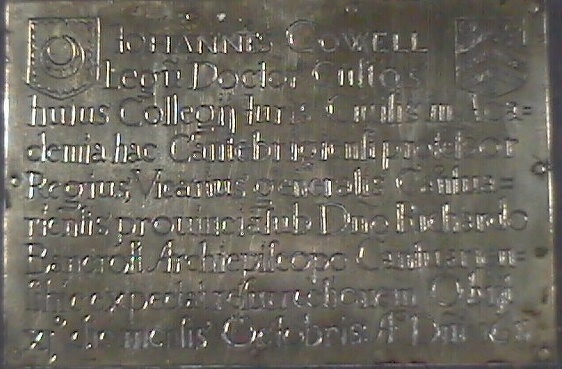 IOHANNIS COWELL
Legū Doctor Custos
huius Collegij Iuris Ciuilis in Aca=
demia hac Cantebrigiensi professor
Regius, Vicarius generalis Cantua=
riensis prouinciæ sub Dno Richardo
Bancroft Archiepiscopo Cantuarien=
si hic expectat resurrectionem Obijt
die mensis Octobris: Aº Dni